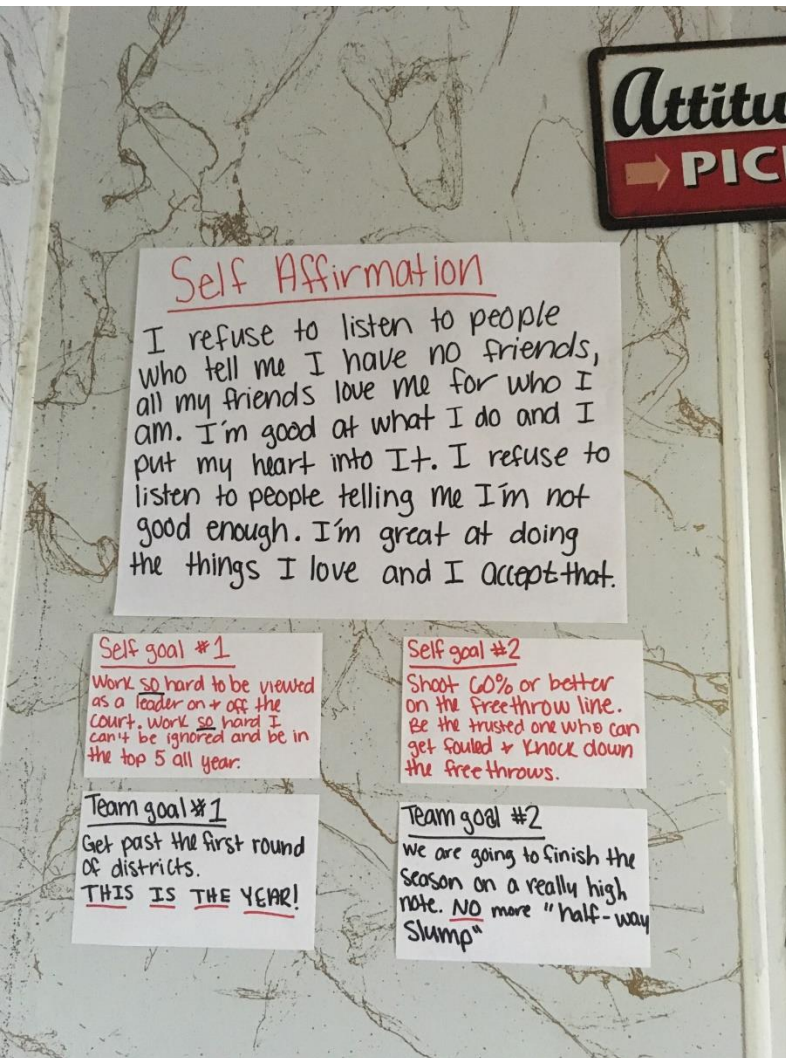 Attitu
PIC
Self Affirmation
I refuse to listen to people
who tell me I have no friends,
all my friends love me for who I
am. I'm good at what I do and I
put my heart into It. I refuse to
listen to people telling me I'm not
good enough. I'm great at doing
the things I love and I accept that.
Self goal #1
Work so hard to be viewed
as a leader on + off the
court. Work so hard I
can't be ignored and be in
the top 5 all year.
Self goal #2
Shoot 60% or better
on the freethrow line.
Be the trusted one who can
get fouled + knock down
the free throws.
Team goal #1
Get past the first round
of districts.
THIS IS THE YEAR!
Team goal #2
we are going to finish the
season on a really high
note. NO more "half-way
Slump"